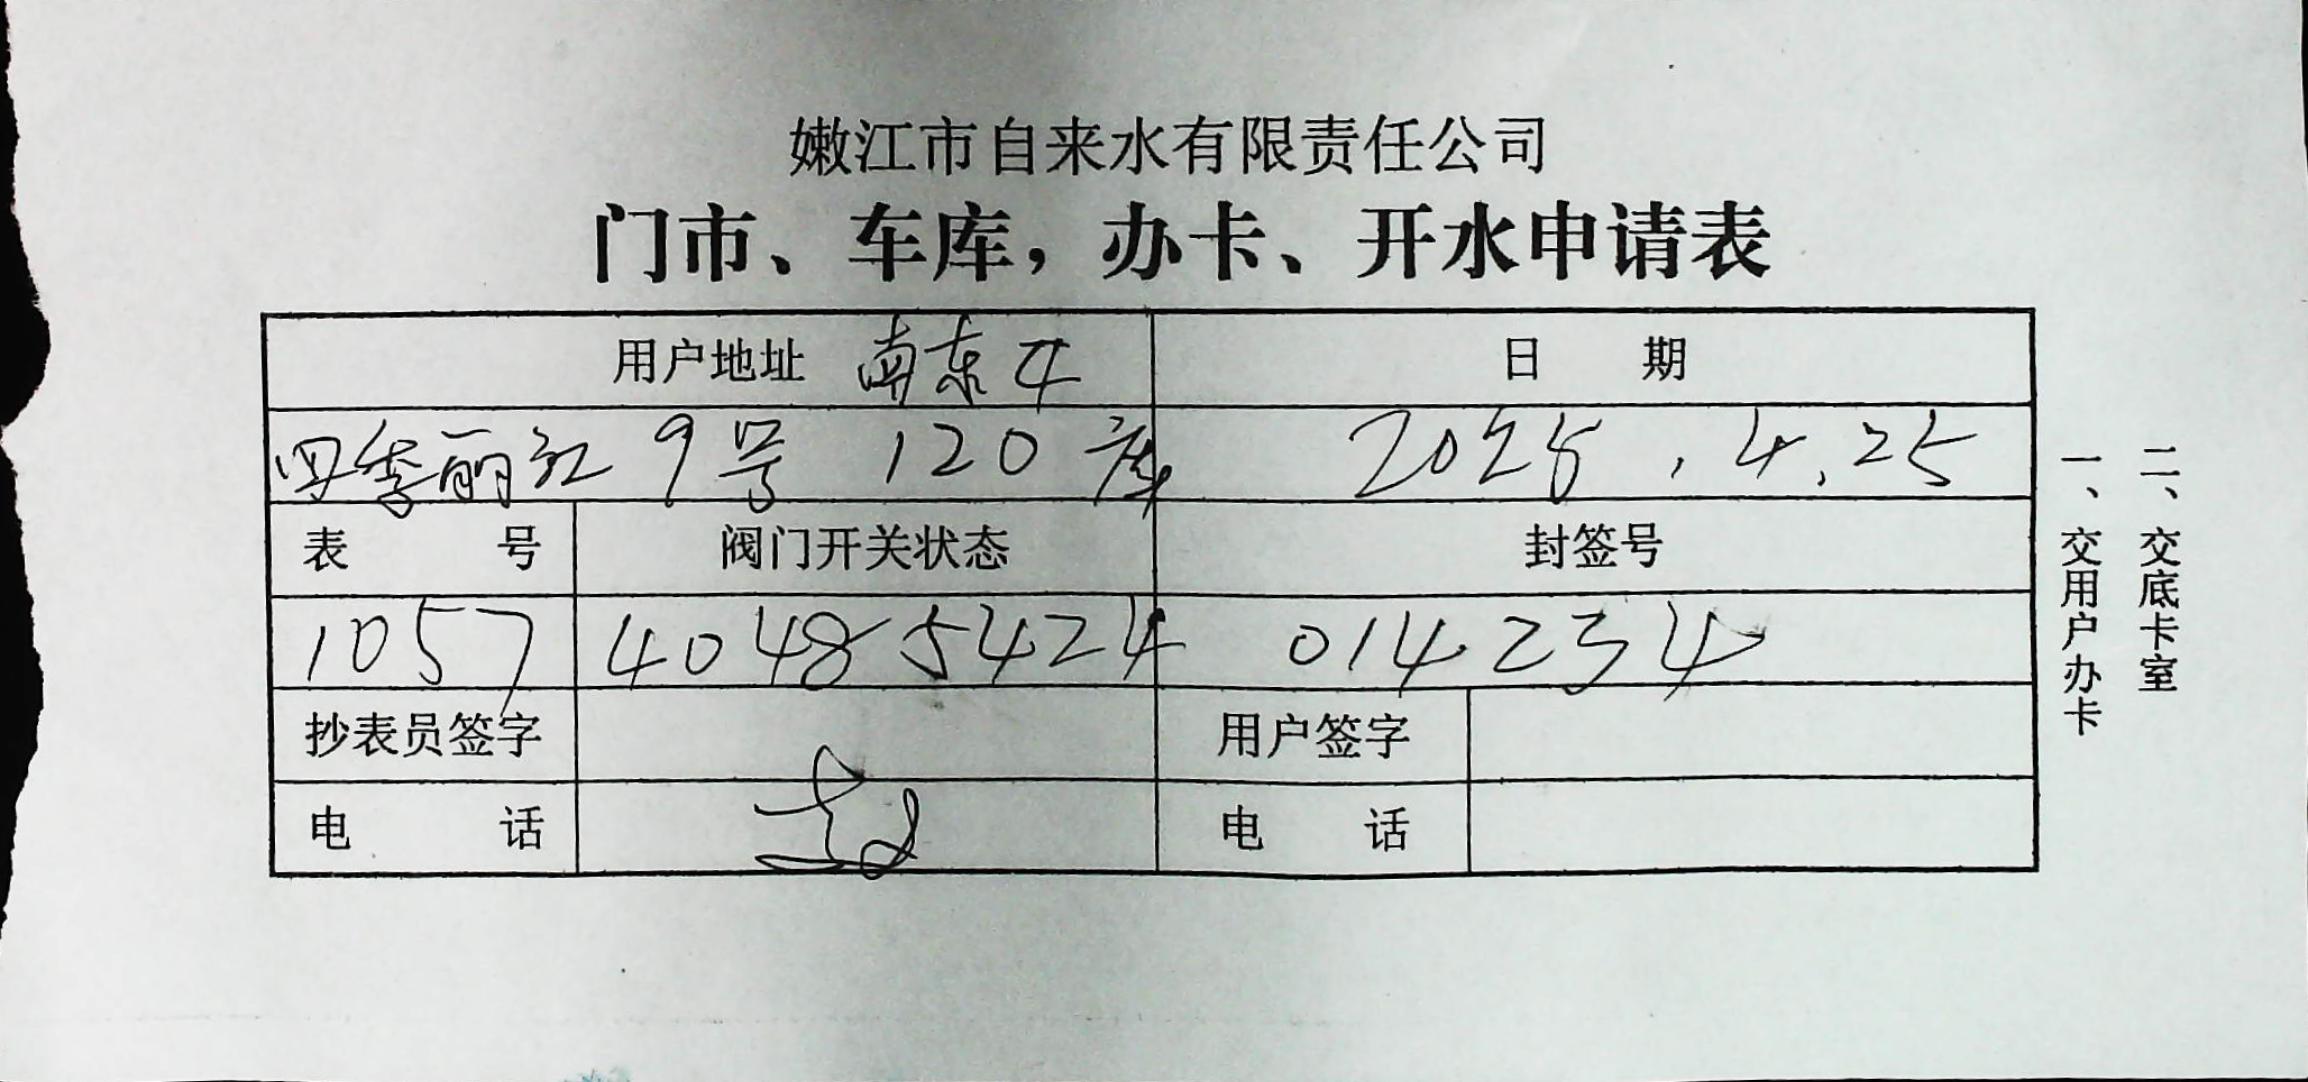 嫩江市自来水有限责任公司
门市、车库，办卡、开水申请表
用户地址 南东4 日 期
四季丽江 9号 120库 2025.4.25
表 号 阀门开关状态 封签号
1057 40485424 014234
抄表员签字 用户签字
电 话 电 话
一、交用户办卡
二、交底卡室